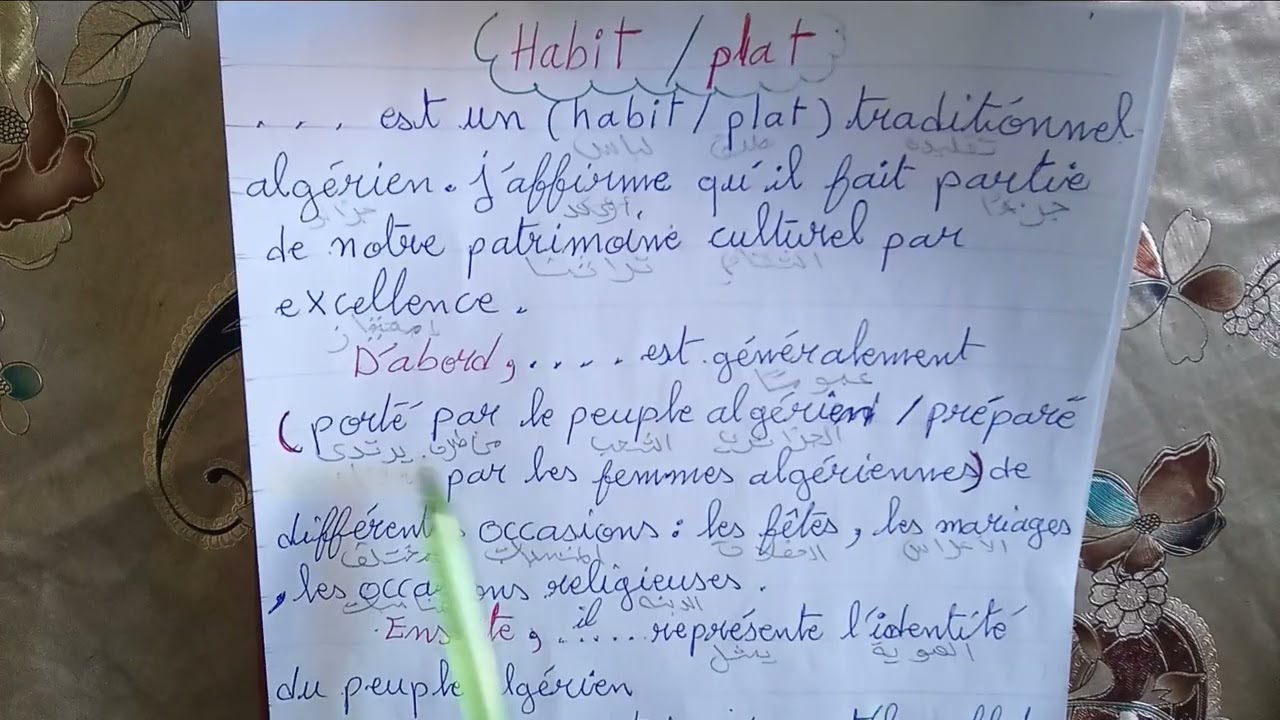 Habit / plat
. . . est un (habit / plat) traditionnel
لباس طبق تقليدي
algérien. j'affirme qu'il fait partie
أؤكد جزء
de notre patrimoine culturel par
تراثنا الثقافي
excellence.
بامتياز
D'abord, . . . . est généralement
عموما
( porté par le peuple algérien / préparé
يرتدى الشعب الجزائري
par les femmes algériennes) de
occasions : les fêtes, les mariages
المناسبات الحفلات الأعراس
, les religieuses.
الدينية
il représente l'identité
يمثل الهوية
du peuple algérien